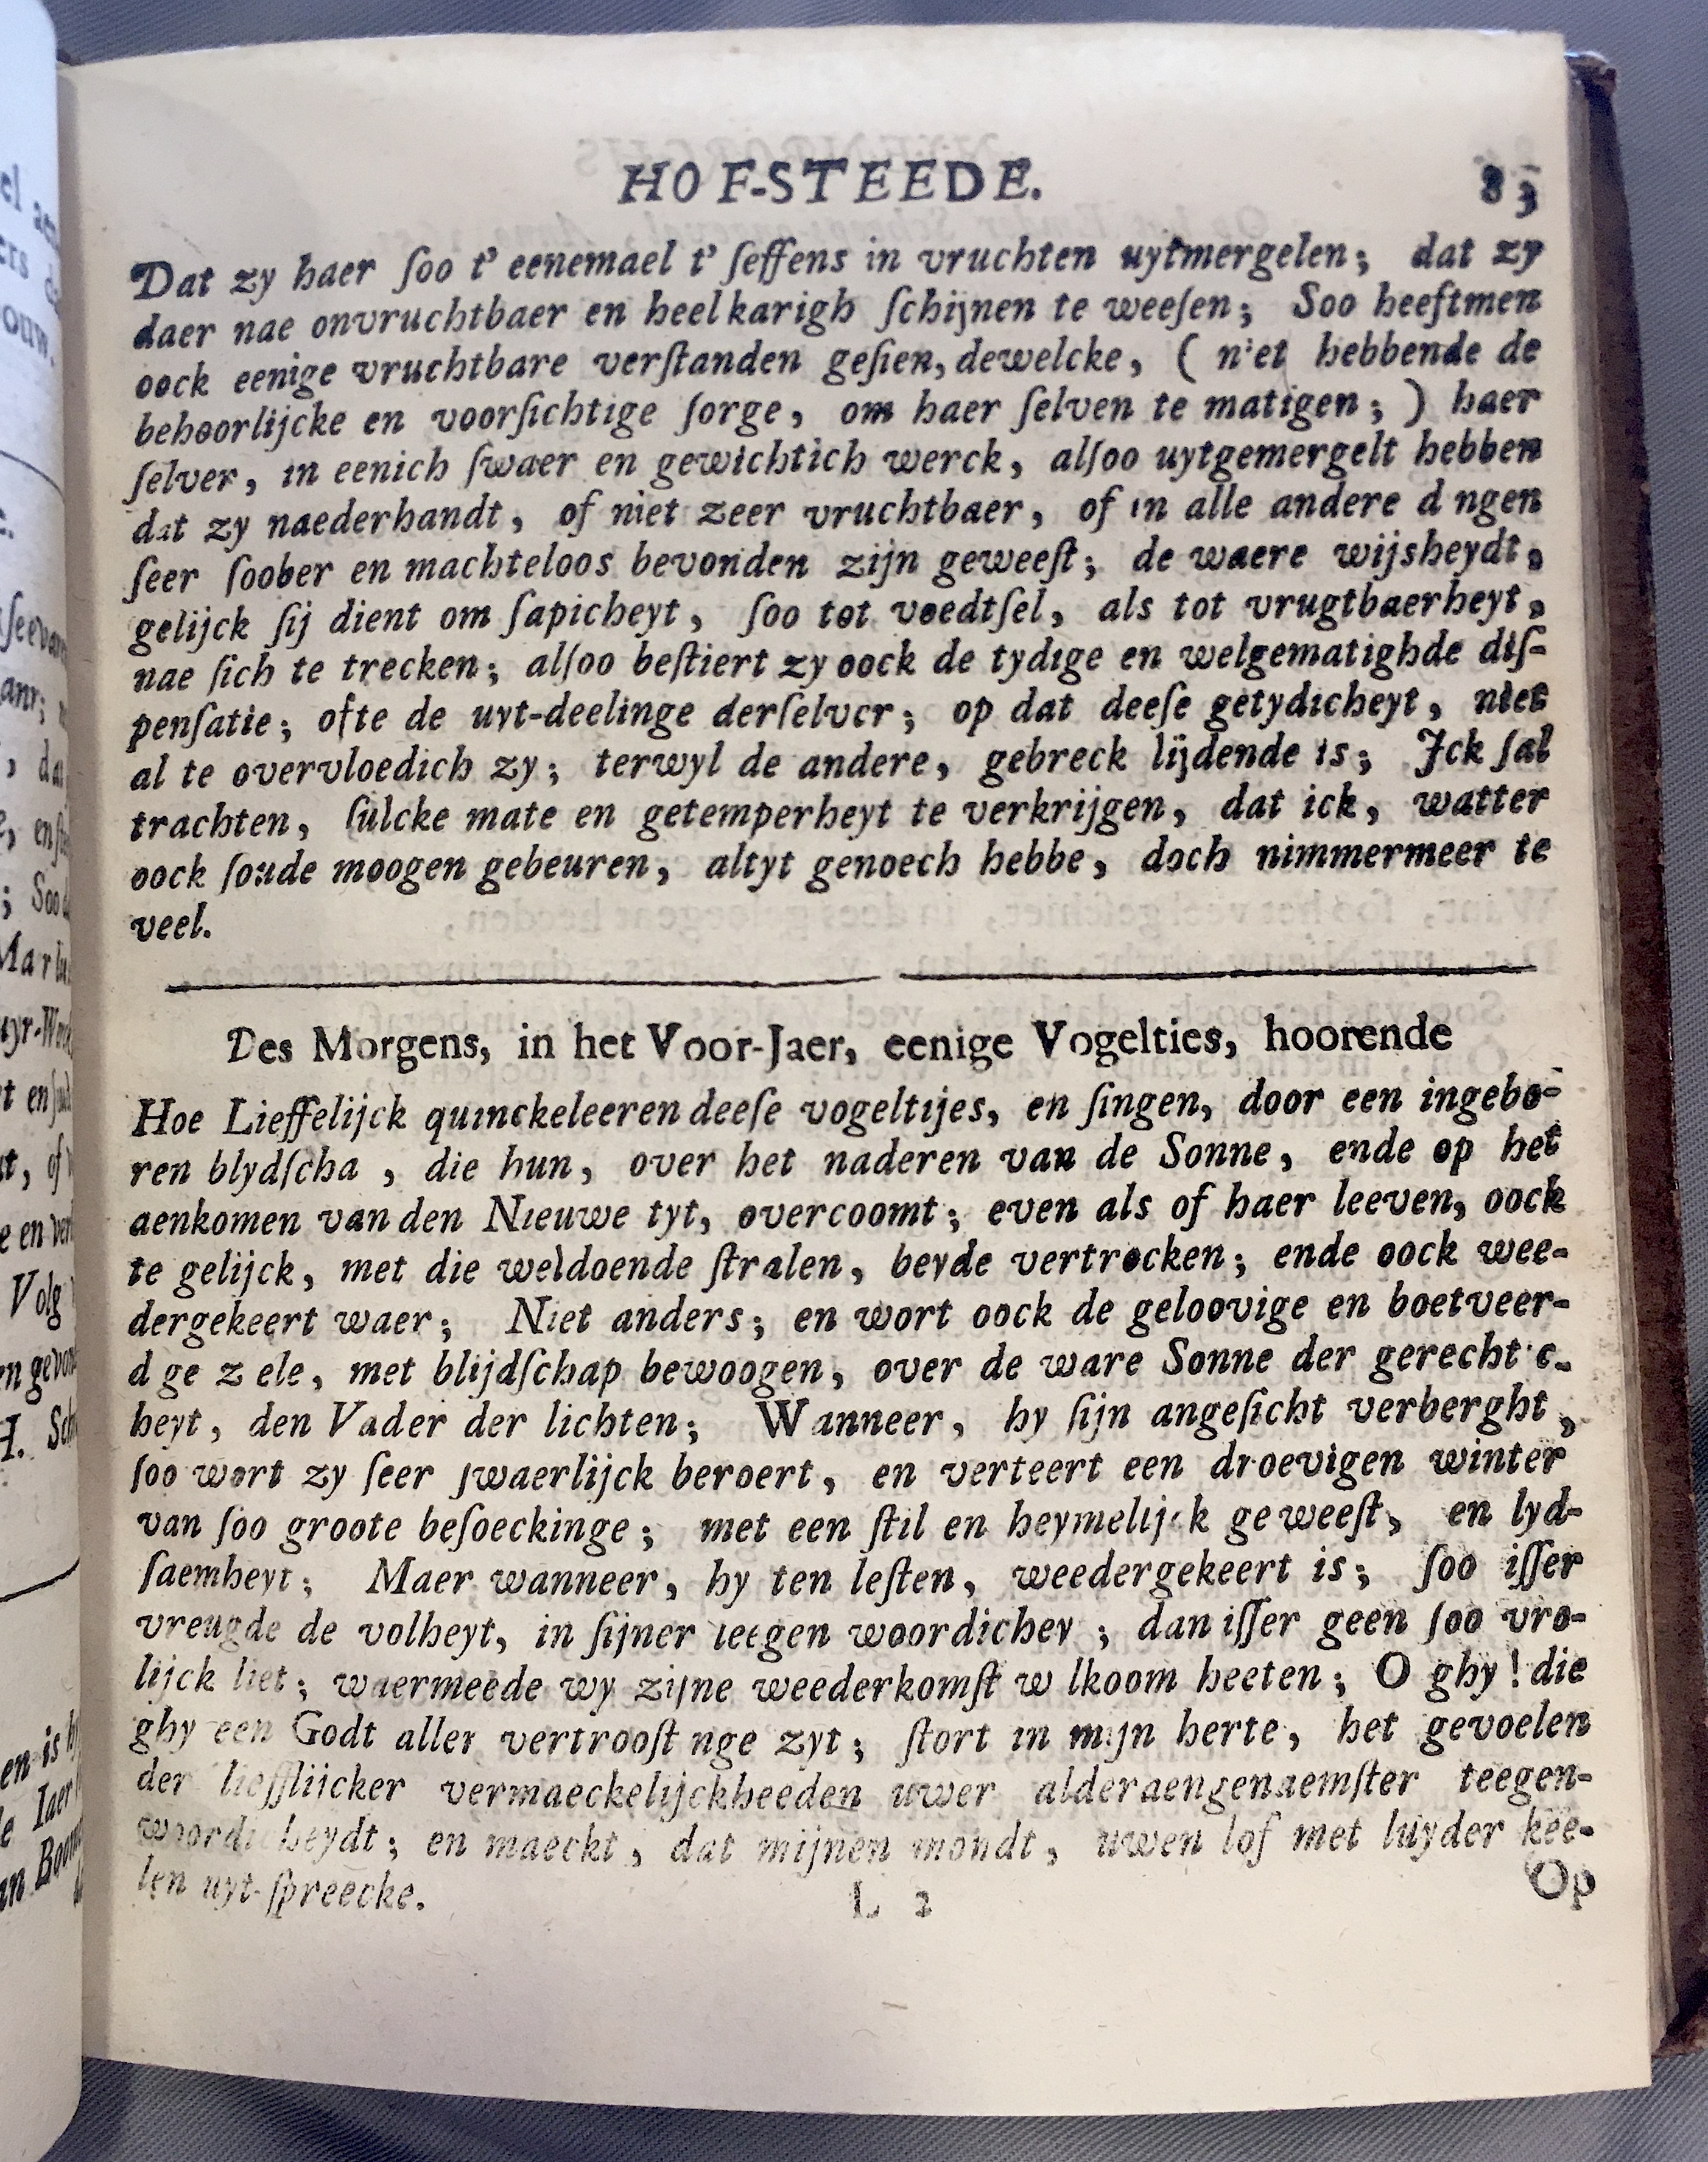 HOF-STEEDE. 83
Dat zy haer ſoo t' eenemael t' ſeffens in vruchten uytmergelen; dat zy
daer nae onvruchtbaer en heel karigh ſchijnen te weeſen; Soo heeftmen
oock eenige vruchtbare verſtanden geſien, dewelcke, ( niet hebbende de
behoorlijcke en voorſichtige ſorge, om haer ſelven te matigen; ) haer
ſelver, in eenich ſwaer en gewichtich werck, alſoo uytgemergelt hebben
dat zy naederhandt, of niet zeer vruchtbaer, of in alle andere d ngen
ſeer ſoober en machteloos bevonden zijn geweeſt; de waere wijsheydt,
gelijck ſij dient om ſapicheyt, ſoo tot voedtſel, als tot vrugtbaerheyt,
nae ſich te trecken; alſoo beſtiert zy oock de tydige en welgematighde diſ-
penſatie; ofte de uyt-deelinge derſelver; op dat deeſe getydicheyt, niet
al te overvloedich zy; terwyl de andere, gebreck lijdende is; Ick ſal
trachten, ſulcke mate en getemperheyt te verkrijgen, dat ick, watter
oock ſoude moogen gebeuren, altyt genoech hebbe, doch nimmermeer te
veel.
Des Morgens, in het Voor-Jaer, eenige Vogelties, hoorende
Hoe Lieffelijck quinckeleeren deeſe vogeltijes, en ſingen, door een ingebo-
ren blydſcha , die hun, over het naderen van de Sonne, ende op het
aenkomen van den Nieuwe tyt, overcoomt; even als of haer leeven, oock
te gelijck, met die weldoende ſtralen, beyde vertrocken; ende oock wee-
dergekeert waer; Niet anders; en wort oock de geloovige en boetveer-
d ge z ele, met blijdſchap bewoogen, over de ware Sonne der gerecht c-
heyt, den Vader der lichten; Wanneer, hy ſijn angeſicht verberght,
ſoo wort zy ſeer ſwaerlijck beroert, en verteert een droevigen winter
van ſoo groote beſoeckinge; met een ſtil en heymelijck geweeſt, en lyd-
ſaemheyt; Maer wanneer, hy ten leſten, weedergekeert is; ſoo iſſer
vreugde de volheyt, in ſijner teegen woordichey ; dan iſſer geen ſoo vro-
lijck liet; waermeede wy zijne weederkomſt w lkoom heeten; O ghy! die
ghy een Godt aller vertrooſt nge zyt; ſtort in mijn herte, het gevoelen
der liefflijcker vermaeckelijckheeden uwer alderaengenaemſter teegen-
woordi heydt; en maeckt, dat mijnen mondt, uwen lof met luyder kee-
len uyt-ſpreecke.
L 2 Op